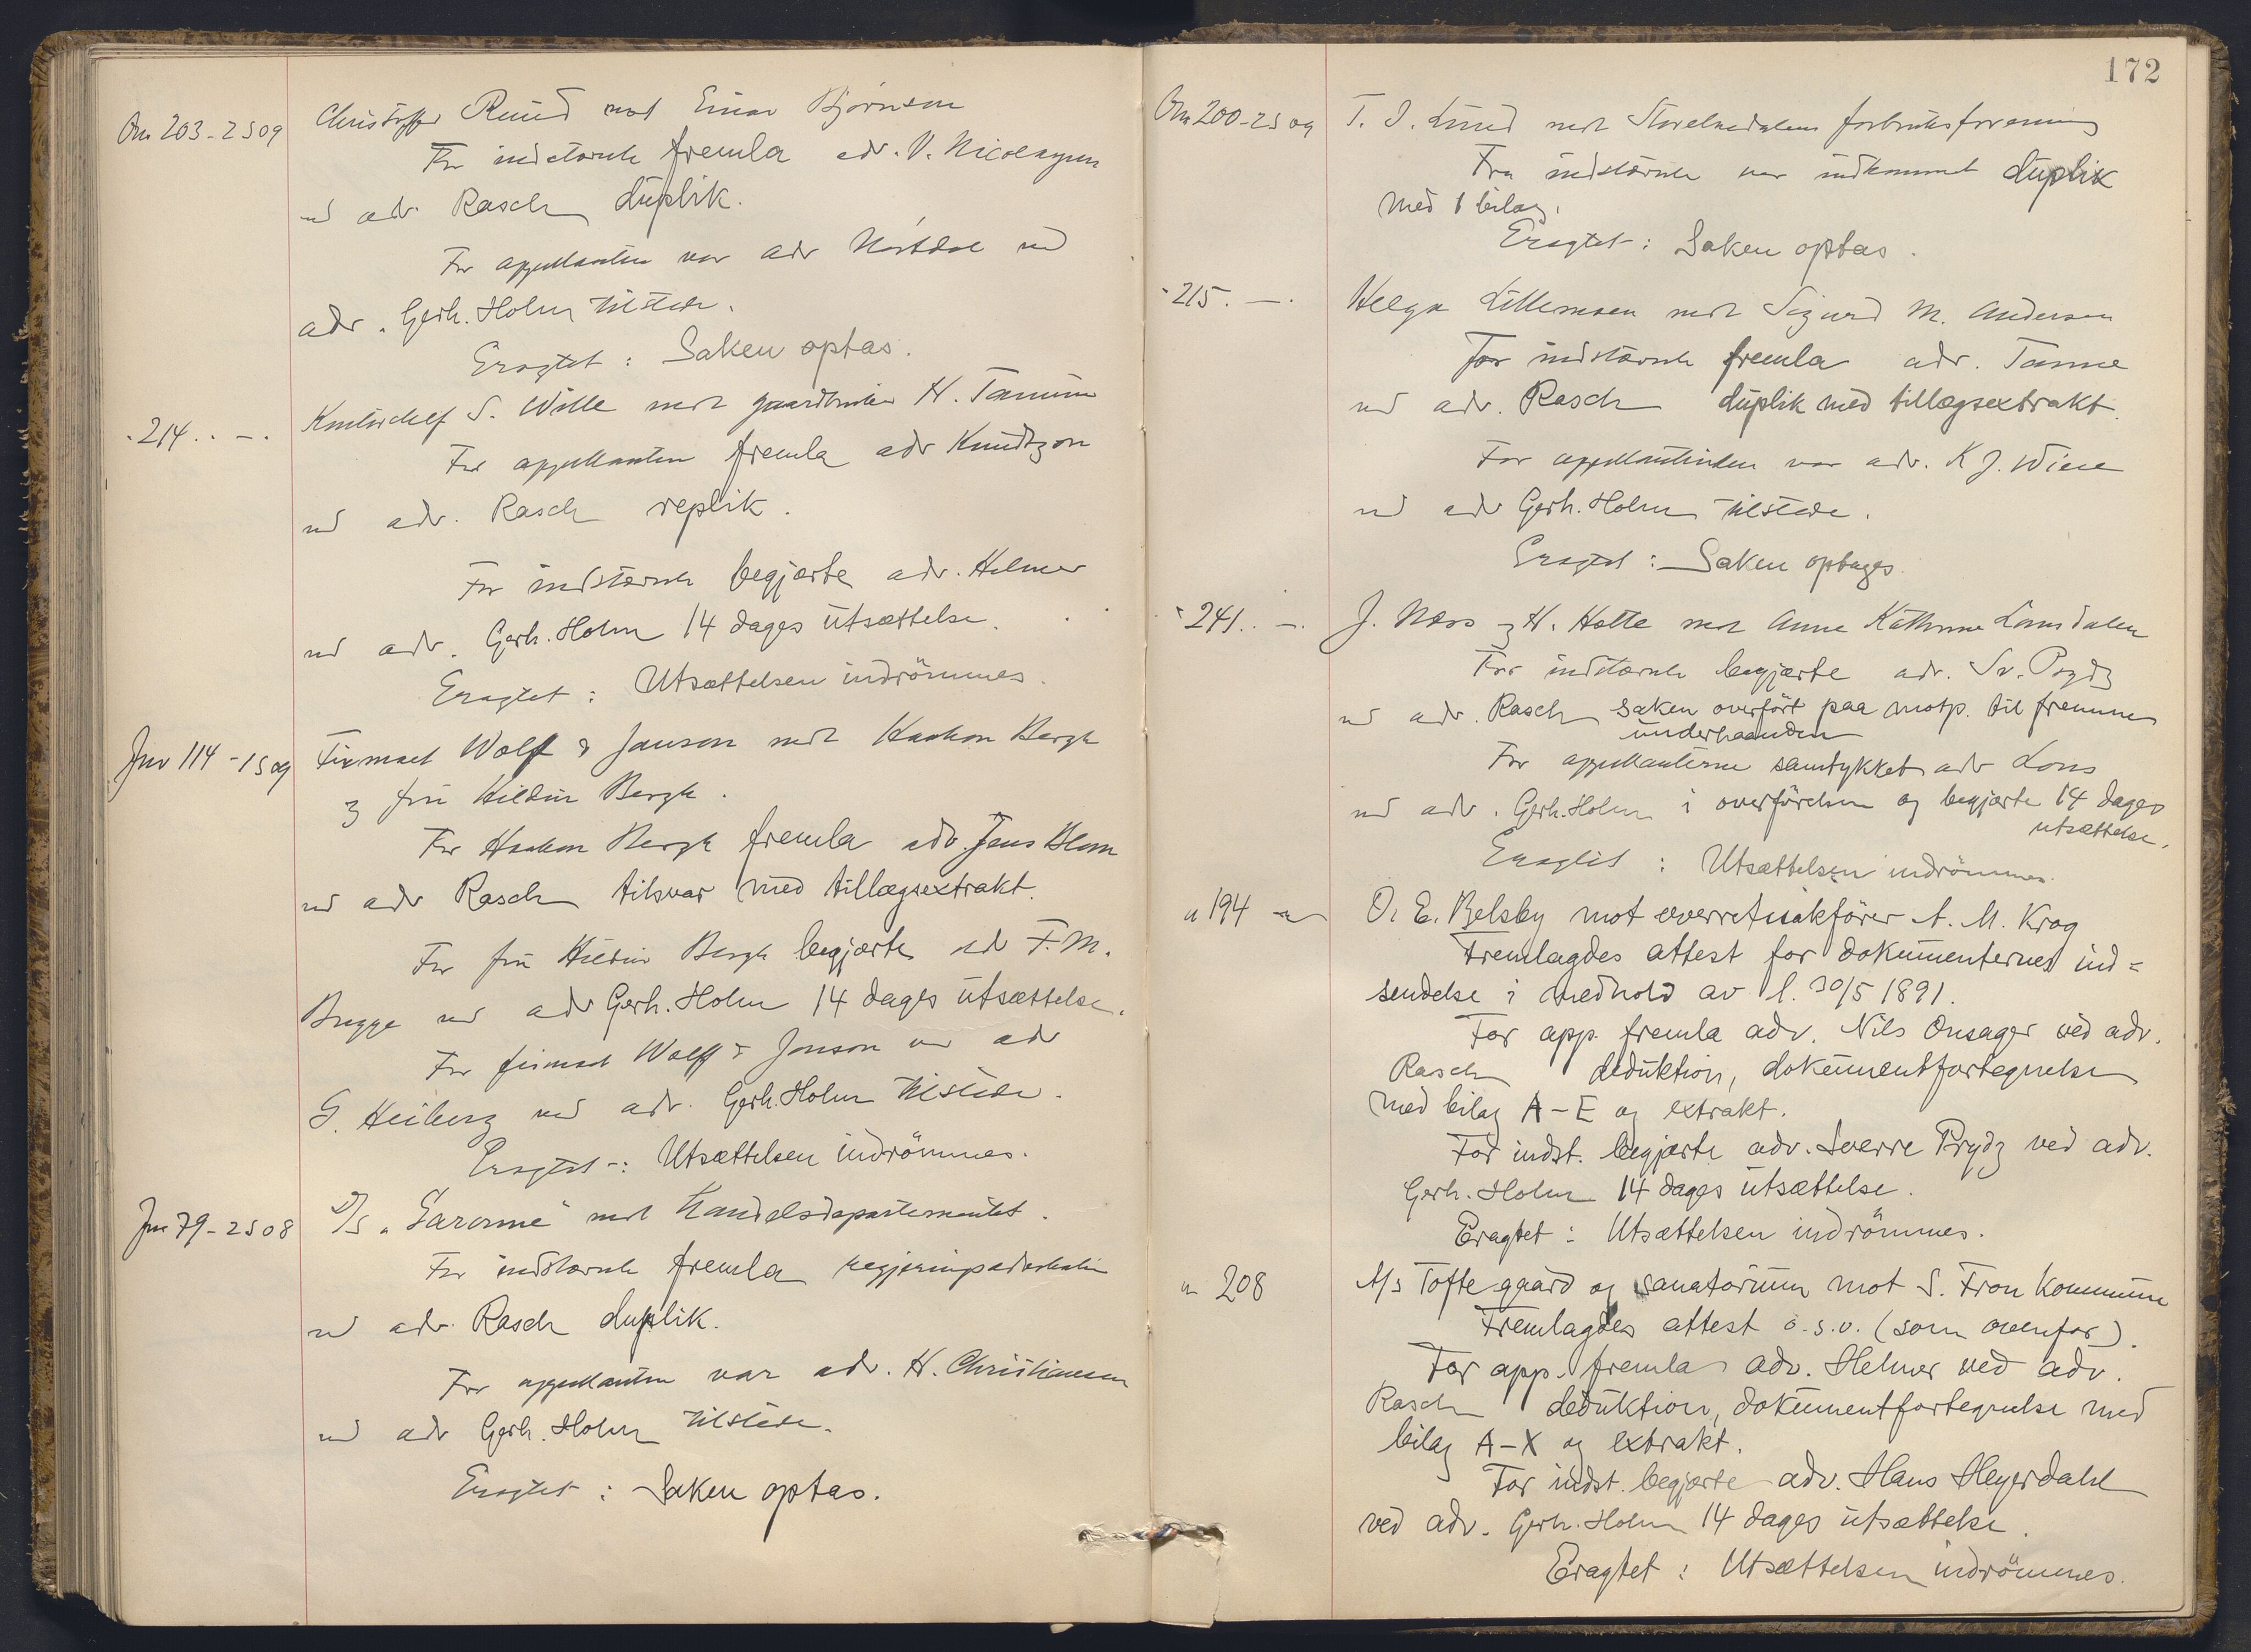 Om 203 - 2 S 09
Christoffer Ruud mot Einar Bjørnson
For indstævnte fremla adv. V. Nicolaysen
ved adv. Rasch duplik.
For appellanten var adv ved
adv. Gerh. Holm tilstede.
Eragtet : Saken optas.
" 214 . . - .
S. Wille mot gaardbruker H. Tanum
For appellanten fremla adv Knudtzon
ved adv. Rasch replik.
For indstævnte begjærte adv. Helmer
ved adv. Gerh. Holm 14 dages utsættelse.
Eragtet : Utsættelsen indrömmes.
Jnv 114 - 1 S 09
Firmaet Wolff & Janson mot Haakon Bergh
og fru Hildur Bergh.
For Haakon Bergh fremla adv. Jens Blom
ved adv Rasch tilsvar med tillægsextrakt.
For fru Hildur Bergh begjærte adv F. M.
Bugge ved adv Gerh. Holm 14 dages utsættelse.
For firmaet Wolff & Janson var adv
G. Heiberg ved adv. Gerh. Holm tilstede.
Eragtet : Utsættelsen indrömmes.
Jnv 79 - 2 S 08
D/S „Garonne" mot Handelsdepartementet.
For indstævnte fremla regjeringsadvokaten
ved adv. Rasch duplik.
For appellanten var adv. H. Christiansen
ved adv Gerh. Holm tilstede.
Eragtet : Saken optas.
172
Om 200 - 2 S 09
T. J. Lund mot Storelvedalens forbruksforening
Fra indstævnte var indkommet duplik
med 1 bilag.
Eragtet : Saken optas.
" 215. — .
Helga Lillemoen mot Sigurd M. Andersen
For indstævnte fremla adv. Tanne
ved adv. Rasch duplik med tillægsextrakt.
For appellantinden var adv. K J. Wiese
ved adv Gerh. Holm tilstede.
Eragtet : Saken optages.
" 241. . - .
J. Næss og H. Holte mot Anne Kathrine
For indstævnte begjærte adv. Sv. Prydz
ved adv. Rasch saken overført paa motp. til fremme
underhaanden
For appellanterne samtykket adv Lous
ved adv. Gerh. Holm i overførelsen og begjærte 14 dages
utsættelse.
Eragtet : Utsættelsen indrömmes.
" 194 - "
O. E. Belsby mot overretssakfører A. M. Krog
Fremlagdes attest for dokumenternes ind=
sendelse i medhold av l. 30/5 1891.
For app. fremla adv. Nils Onsager ved adv.
Rasch deduktion, dokumentfortegnelse
med bilag A - E og extrakt.
For indst. begjærte adv. Sverre Prydz ved adv.
Gerh. Holm 14 dages utsættelse.
Eragtet : Utsættelsen indrömmes.
" 208
A/s Tofte gaard og sanatorium mot S. Fron kommune
Fremlagdes attest o.s.v. (som ovenfor).
For app. fremla adv. Helmer ved adv.
Rasch deduktion, dokumentfortegnelse med
bilag A - X og extrakt.
For indst. begjærte adv. Hans Heyerdahl
ved adv. Gerh. Holm 14 dages utsættelse.
Eragtet : Utsættelsen indrömmes.